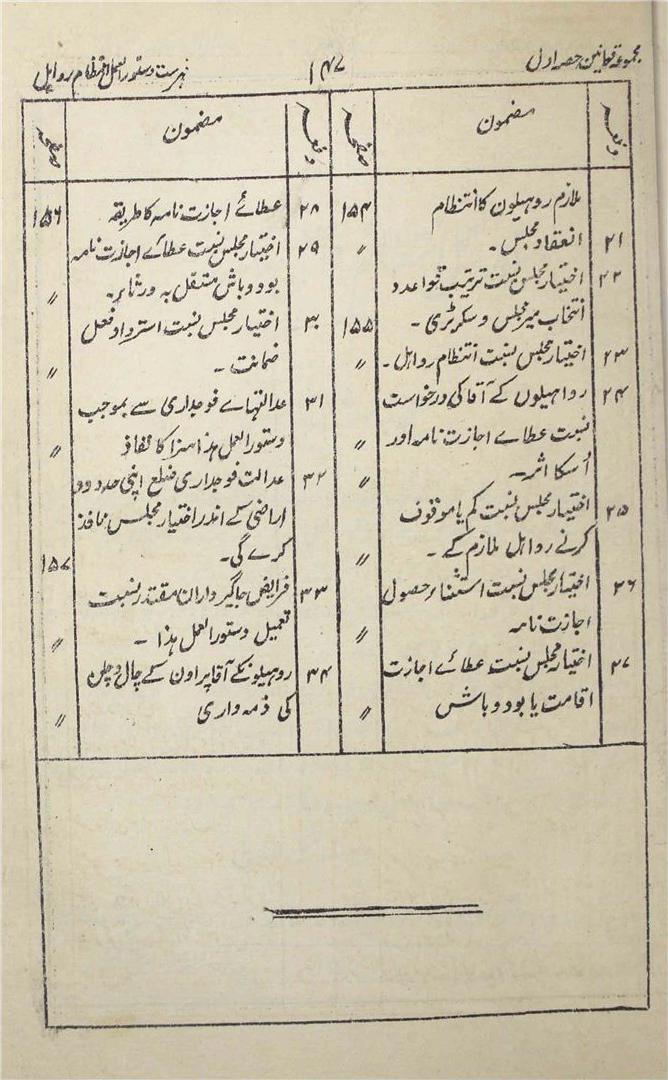 مجموعہ قوانین حصہ اول
۱۴۷
فہرست دستورالعمل انتظام رواہل
دفعہ مضمون صفحہ
ملازم روہیلوں کا انتظام ۱۵۴
۲۱ انعقاد مجلس ۔ 〃
۲۲ اختیار مجلس نسبت ترتیب قواعد و
انتخاب میر مجلس و سکرٹری ۔ ۱۵۵
۲۳ اختیار مجلس نسبت انتظام رواہل ۔ 〃
۲۴ رواہیلوں کے آقا کی درخواست
نسبت عطاے اجازت نامہ اور 〃
اُسکا اثر ۔ 〃
۲۵ اختیار مجلس نسبت کم یا موقوف
کرنے رواہل ملازم کے ۔ 〃
۲۶ اختیار مجلس نسبت استثناء حصول
اجازت نامہ 〃
۲۷ اختیار مجلس نسبت عطائے اجازت
اقامت یا بود و باش 〃
دفعہ مضمون صفحہ
۲۸ عطائے اجازت نامہ کا طریقہ ۱۵۶
۲۹ اختیار مجلس نسبت عطائے اجازت نامہ
بود و باش منتقل بہ ورثاء ۔ 〃
۳۰ اختیار مجلس نسبت استرداد فعل
ضمانت ۔ 〃
۳۱ عدالتہاے فوجداری سے بموجب
دستورالعمل ہذا سزا کا نفاذ 〃
۳۲ عدالت فوجداری ضلع اپنی حدود و
اراضی کے اندر اختیار مجلس نافذ
کرے گی ۔ ۱۵۷
۳۳ فرایض جاگیرداران مقتدر نسبت
تعمیل دستورالعمل ہذا ۔ 〃
۳۴ روہیلونکے آقا پر اون کے چال و چلن
کی ذمہ داری 〃